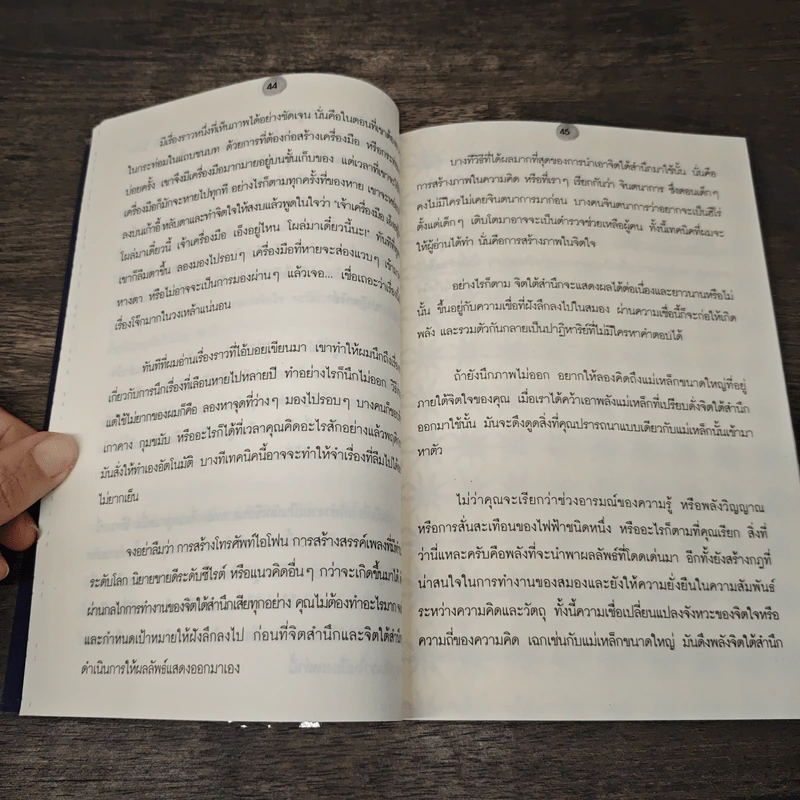 44
มีเรื่องราวหนึ่งที่เห็นภาพได้อย่างชัดเจน นั่นคือในตอนที่เขาต้อง
ในกระท่อมในแถบชนบท ด้วยการที่ต้องก่อสร้างเครื่องมือ หรือ
บ่อยครั้ง เขาจึงมีเครื่องมือมากมายอยู่บนชั้นเก็บของ แต่เวลาที่เขาจะ
เครื่องมือก็มักจะหายไปทุกที อย่างไรก็ตามทุกครั้งที่ของหาย เขาจะ
ลงบนเก้าอี้ หลับตาและทำจิตใจให้สงบแล้วพูดในใจว่า "เจ้าเครื่องมือ เอ็งอยู่
โผล่มาเดี๋ยวนี้ เจ้าเครื่องมือ เอ็งอยู่ไหน โผล่มาเดี๋ยวนี้นะ!" ทันที
เขาก็ลืมตาขึ้น ลองมองไปรอบๆ เครื่องมือที่หายจะส่องแวบๆ เข้ามา
หางตา หรือไม่อาจจะเป็นการมองผ่านๆ แล้วเจอ... เชื่อเถอะว่าเรื่องนี้
เรื่องโจ๊กมากในวงเหล้าแน่นอน
ทันทีที่ผมอ่านเรื่องราวที่ไอ้บอยเขียนมา เขาทำให้ผมนึกถึงเรื่อง
เกี่ยวกับการนึกเรื่องที่เลือนหายไปหลายปี ทำอย่างไรก็นึกไม่ออก
แต่ใช้ไม่ยากของผมก็คือ ลองหาจุดที่ว่างๆ มองไปรอบๆ บางคนก็ชอบ
เกาคาง กุมขมับ หรืออะไรก็ได้ที่เวลาคุณคิดอะไรสักอย่างแล้ว
มันสั่งให้ทำเองอัตโนมัติ บางทีเทคนิคนี้อาจจะทำให้จำเรื่องที่ลืมไปได้
ไม่ยากเย็น
จงอย่าลืมว่า การสร้างโทรศัพท์ไอโฟน การสร้างสรรค์เพลงที่
ระดับโลก นิยายขายดีระดับซีไรต์ หรือแนวคิดอื่นๆ กว่าจะเกิดขึ้นมาได้
ผ่านกลไกการทำงานของจิตใต้สำนึกเสียทุกอย่าง คุณไม่ต้องทำอะไรมาก
และกำหนดเป้าหมายให้ฝังลึกลงไป ก่อนที่จิตสำนึกและจิตใต้สำนึก
ดำเนินการให้ผลลัพธ์แสดงออกมาเอง
45
บางทีวิธีที่ได้ผลมากที่สุดของการนำเอาจิตใต้สำนึกมาใช้นั้น นั่นคือ
การสร้างภาพในความคิด หรือที่เราๆ เรียกกันว่า จินตนาการ ซึ่งตอนเด็กๆ
คงไม่มีใครไม่เคยจินตนาการมาก่อน บางคนจินตนาการว่าอยากจะเป็นฮีโร่
ตั้งแต่เด็กๆ เติบโตมาอาจจะเป็นตำรวจช่วยเหลือผู้คน ทั้งนี้เทคนิคที่ผมจะ
ให้ผู้อ่านได้ทำ นั่นคือการสร้างภาพในจิตใจ
อย่างไรก็ตาม จิตใต้สำนึกจะแสดงผลได้ต่อเนื่องและยาวนานหรือไม่
นั้น ขึ้นอยู่กับความเชื่อที่ฝังลึกลงไปในสมอง ผ่านความเชื่อนี้ก็จะก่อให้เกิด
พลัง และรวมตัวกันกลายเป็นปาฏิหาริย์ที่ไม่มีใครหาคำตอบได้
ถ้ายังนึกภาพไม่ออก อยากให้ลองคิดถึงแม่เหล็กขนาดใหญ่ที่อยู่
ภายใต้จิตใจของคุณ เมื่อเราได้คว้าเอาพลังแม่เหล็กที่เปรียบดั่งจิตใต้สำนึก
ออกมาใช้นั้น มันจะดึงดูดสิ่งที่คุณปรารถนาแบบเดียวกับแม่เหล็กนั้นเข้ามา
หาตัว
ไม่ว่าคุณจะเรียกว่าช่วงอารมณ์ของความรู้ หรือพลังวิญญาณ
หรือการสั่นสะเทือนของไฟฟ้าชนิดหนึ่ง หรืออะไรก็ตามที่คุณเรียก สิ่งที่
ว่านี่แหละครับคือพลังที่จะนำพาผลลัพธ์ที่โดดเด่นมา อีกทั้งยังสร้างกฎที่
น่าสนใจในการทำงานของสมองและยังให้ความยั่งยืนในความสัมพันธ์
ระหว่างความคิดและวัตถุ ทั้งนี้ความเชื่อเปลี่ยนแปลงจังหวะของจิตใจหรือ
ความถี่ของความคิด เฉกเช่นกับแม่เหล็กขนาดใหญ่ มันดึงพลังจิตใต้สำนึก